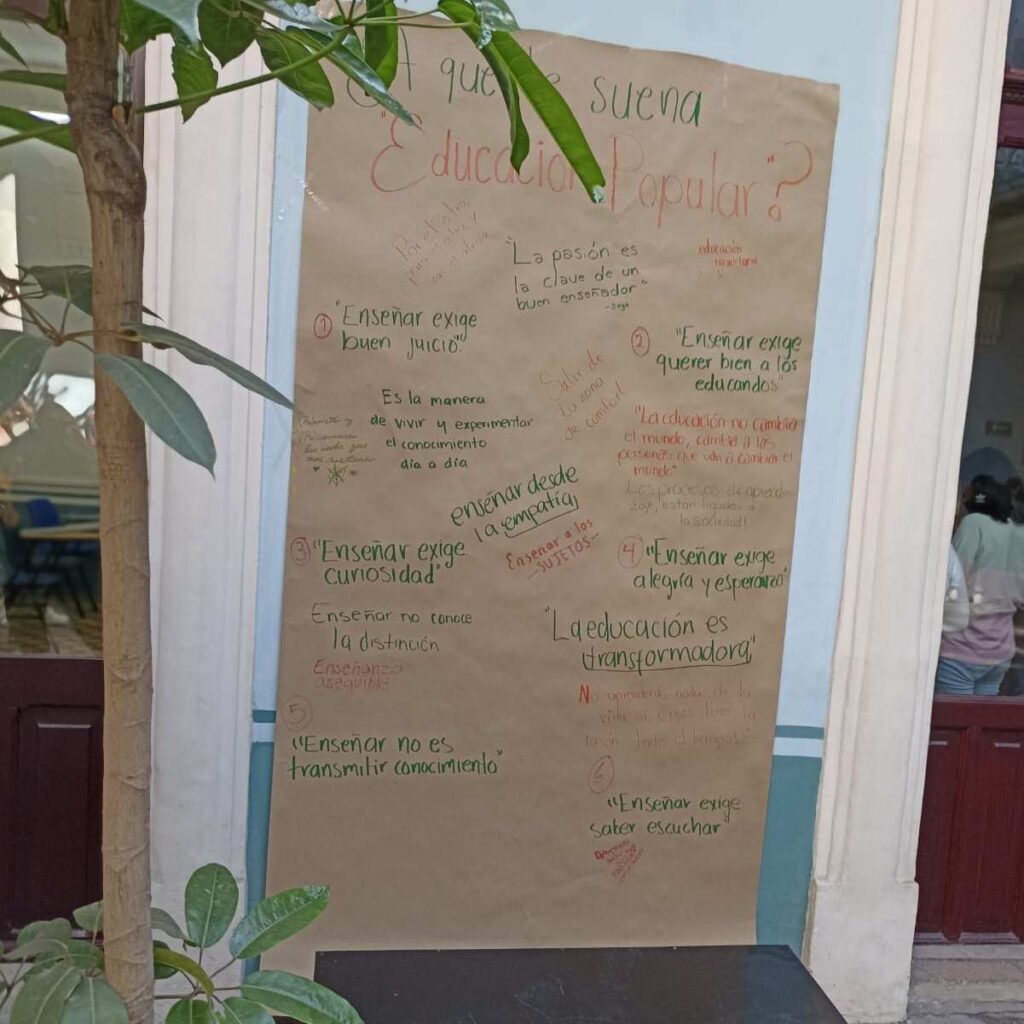 ¿A que te suena
"Educación Popular"?
"La pasión es
la clave de un
buen enseñador"
educación
igualitaria
① "Enseñar exige
buen juicio"
② "Enseñar exige
querer bien a los
educandos"
Salir de
la zona
de comfort
Es la manera
de vivir y experimentar
el conocimiento
dia a dia
"La educación no cambia
el mundo, cambia a las
personas que van a cambiar el
mundo"
Los procesos de aprendi-
zaje, están ligados a
la sociedad!
enseñar desde
la empatía,
Enseñar a los
-SUJETOS-
③ "Enseñar exige
curiosidad"
④ "Enseñar exige
alegría y esperanza"
Enseñar no conoce
la distinción
Enseñanza
asequible
"La educación es
transformadora"
No aprenderás nada de la
vida si crees tener la
razón todo el tiempo
⑤
"Enseñar no es
transmitir conocimiento"
⑥
"Enseñar exige
saber escuchar"